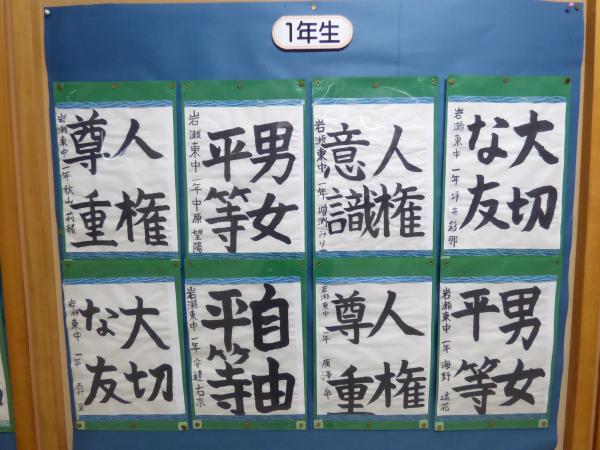 1年生
大切
な友
岩瀬東中 一年
人権
意識
岩瀬東中 一年
男女
平等
岩瀬東中 一年 中原望陽
人権
尊重
岩瀬東中 一年 秋山
男女
平等
岩瀬東中 一年 海野
人権
尊重
岩瀬東中 一年 廣澤
自由
平等
岩瀬東中 一年 安達右京
大切
な友
岩瀬東中 一年